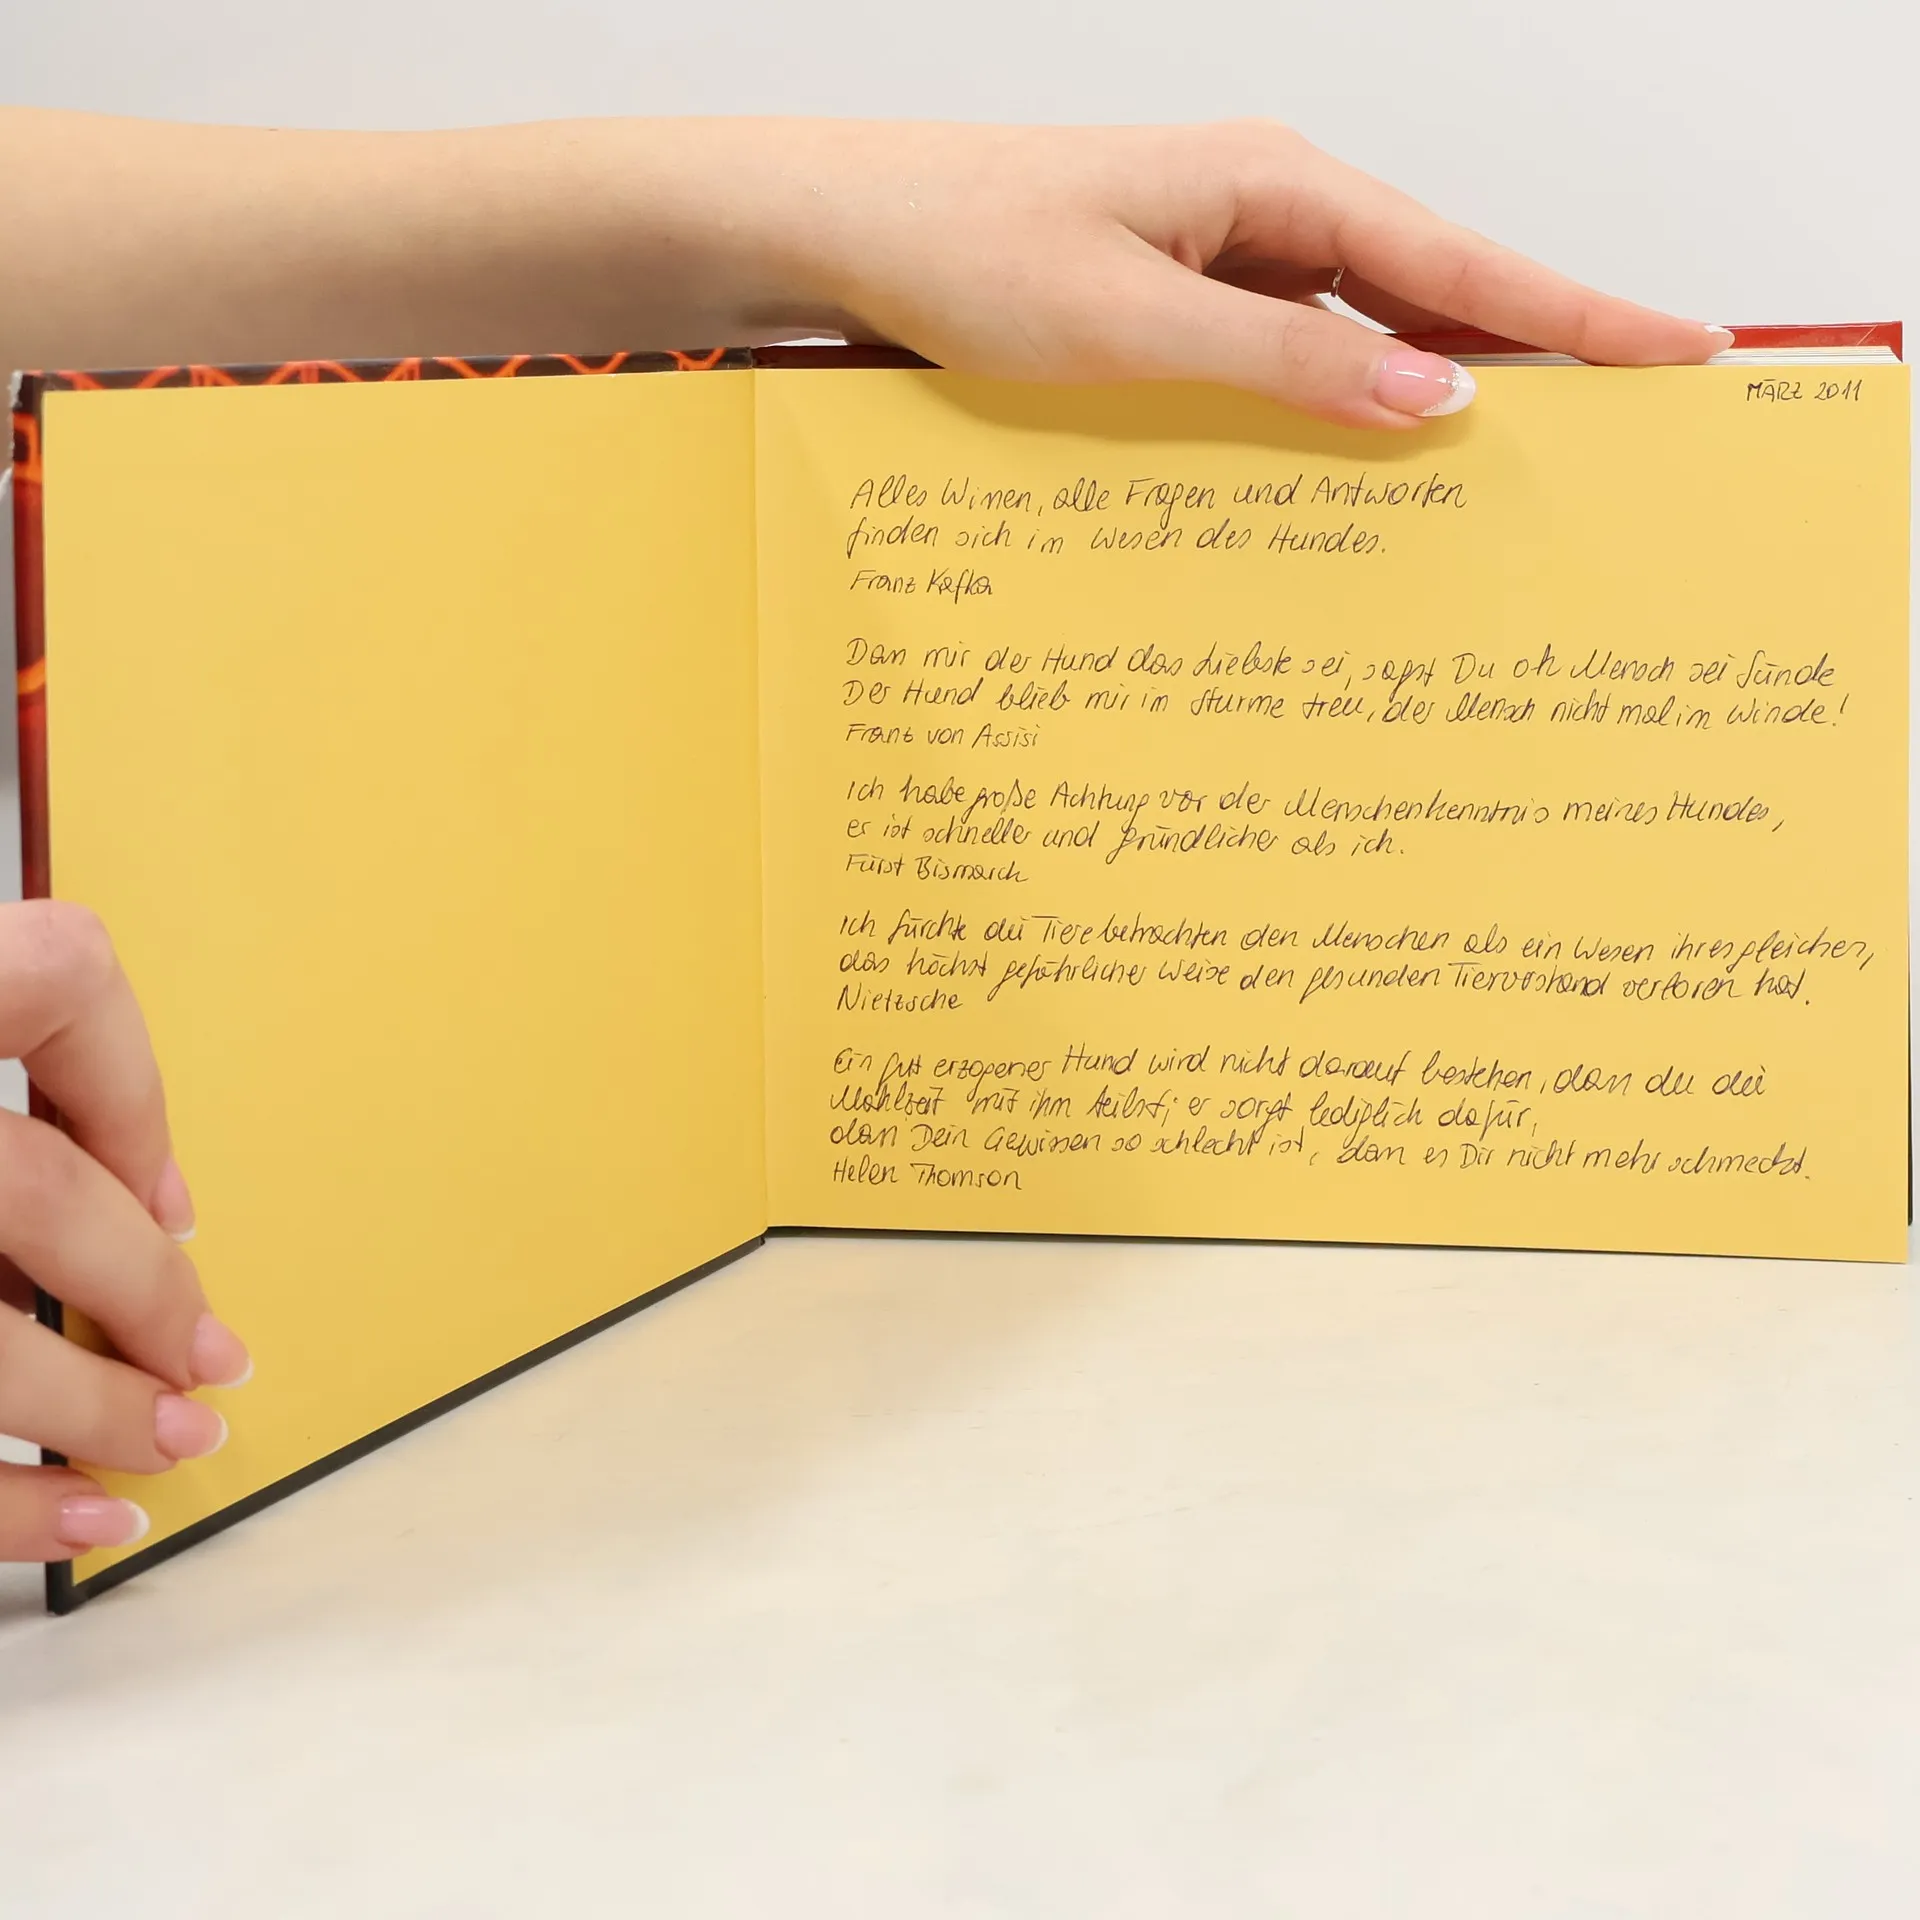 MÄRZ 2011
Alles Wissen, alle Fragen und Antworten
finden sich im Wesen des Hundes.
Franz Kafka
Dass mir der Hund das Liebste sei, sagst Du oh Mensch sei Sünde
Der Hund blieb mir im Sturme treu, der Mensch nicht mal im Winde!
Franz von Assisi
Ich habe große Achtung vor der Menschenkenntnis meines Hundes,
er ist schneller und gründlicher als ich.
Fürst Bismarck
Ich fürchte die Tiere betrachten den Menschen als ein Wesen ihresgleichen,
das höchst gefährlicher Weise den gesunden Tierverstand verloren hat.
Nietzsche
Ein gut erzogener Hund wird nicht darauf bestehen, dass du die
Mahlzeit mit ihm teilst; er sorgt lediglich dafür,
dass Dein Gewissen so schlecht ist, dass es Dir nicht mehr schmeckt.
Helen Thomson